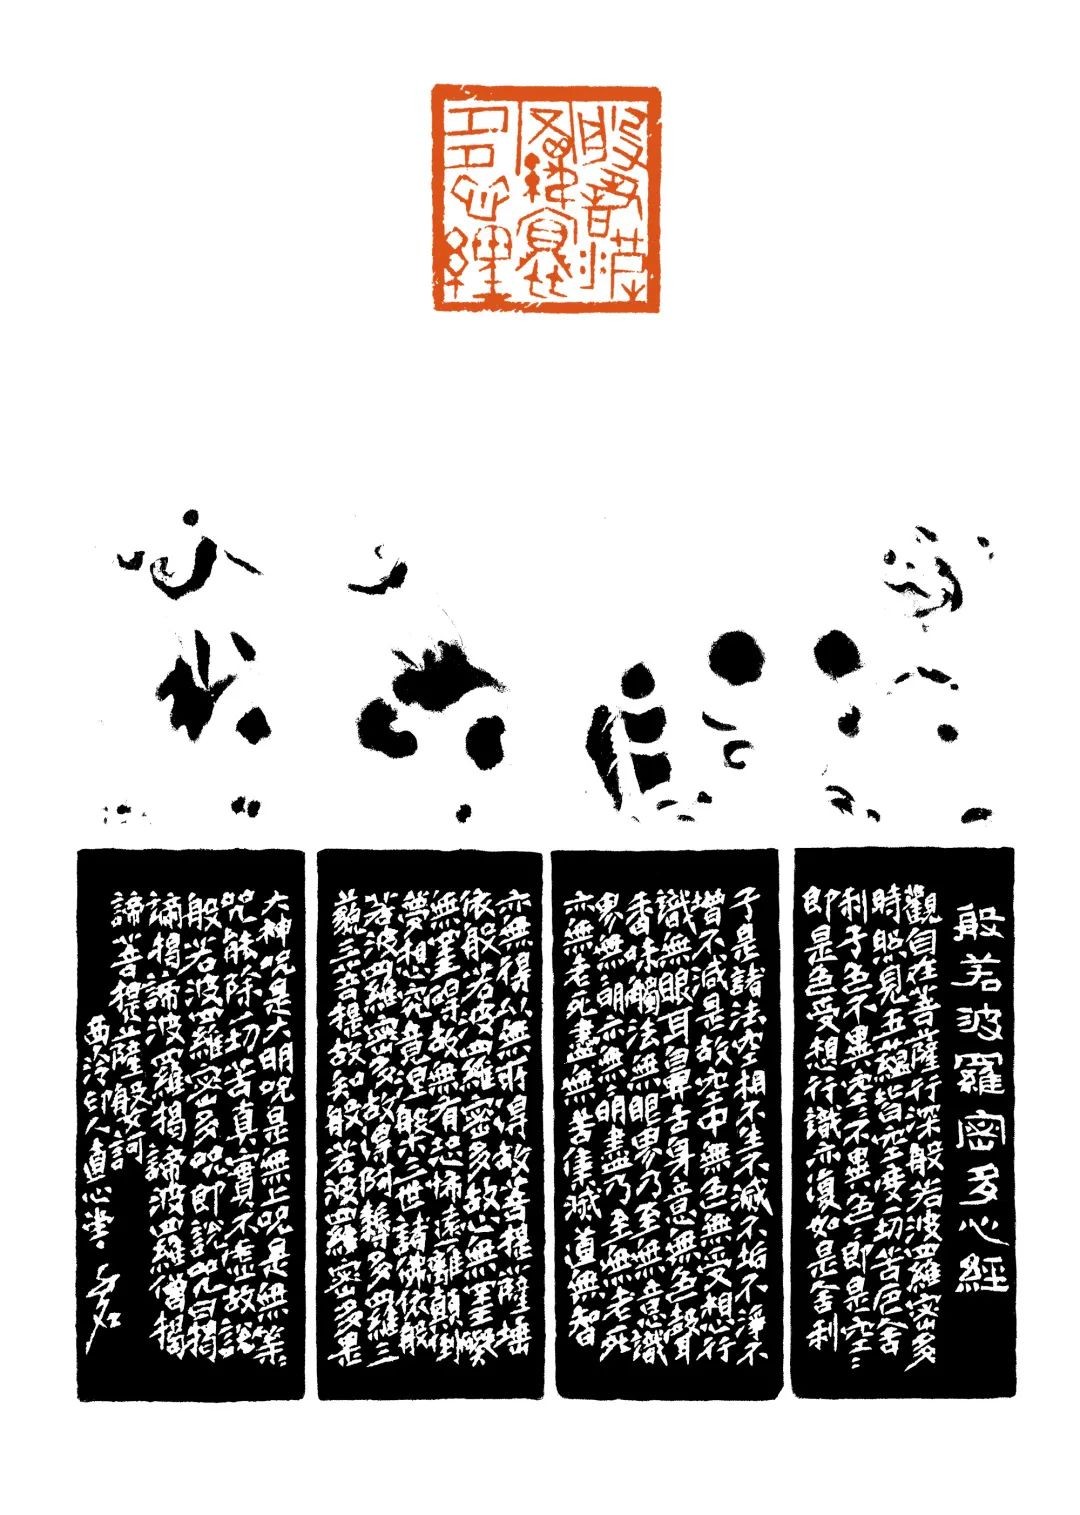 般若波
羅蜜
多心經
般若波羅密多心經
觀自在菩薩行深般若波羅密多
時照見五蘊皆空度一切苦厄舍
利子色不異空〻不異色〻即是空〻
即是色受想行識亦復如是舍利
子是諸法空相不生不滅不垢不淨不
增不減是故空中無色無受想行
識無眼耳鼻舌身意無色聲
香味觸法無眼界乃至無意識
界無〻明亦無〻明盡乃至無老死
亦無老死盡無苦集滅道無智
亦無得以無所得故菩提薩埵
依般若波羅密多故心無罣礙
無罣礙故無有恐怖遠離顛倒
夢想究竟涅槃三世諸佛依般
若波羅密多故得阿耨多羅三
藐三菩提故知般若波羅密多是
大神咒是大明咒是無上咒是無等〻
咒能除一切苦真實不虛故說
般若波羅密多咒即說咒曰揭
諦揭諦波羅揭諦波羅僧揭
諦菩提薩婆訶
西泠印人直心堂